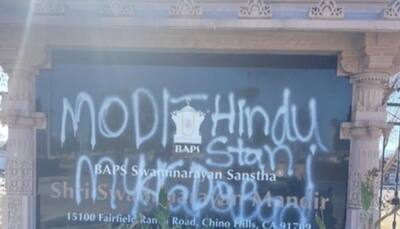 MODI Hindu
BAPS
Stan
BAPS Swaminarayan Sanstha
Shri Swaminarayan Mandir
15100 Fairfield Ranch Road, Chino Hills, CA 91709